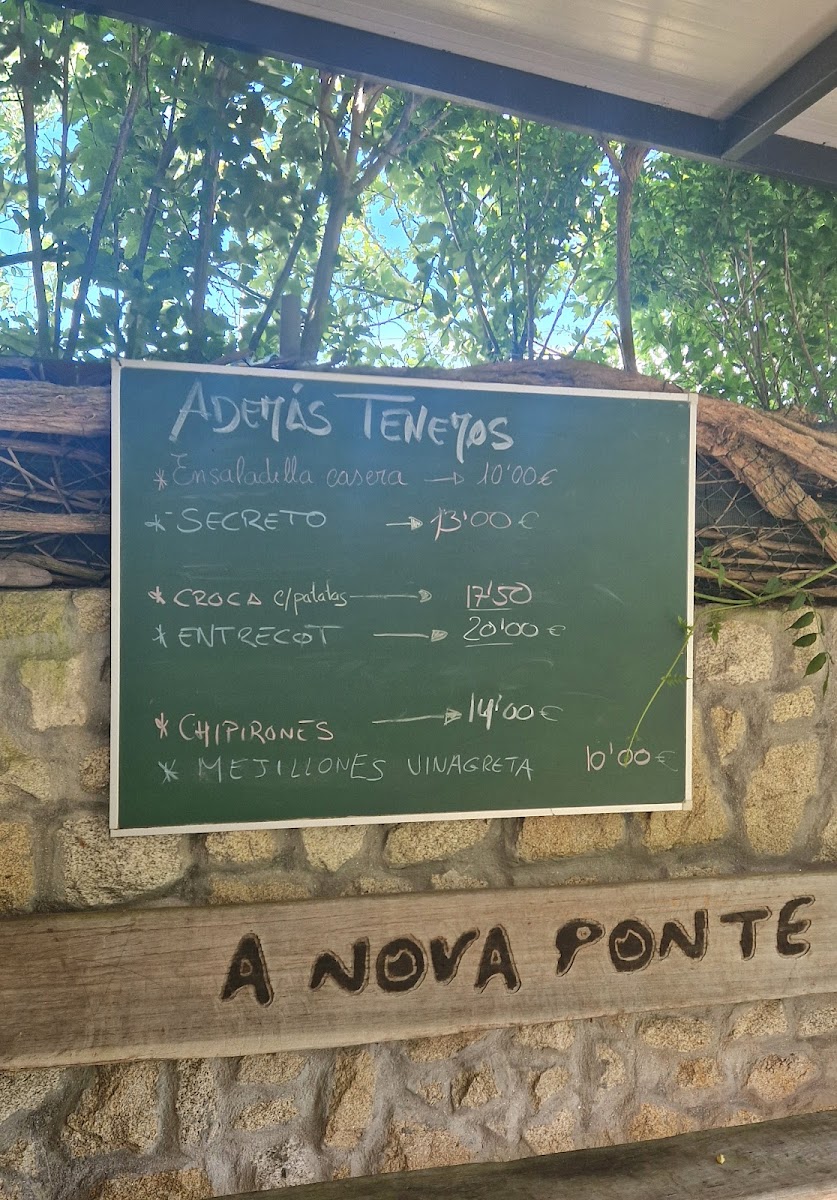 ADEMÁS TENEMOS
* Ensaladilla casera → 10'00€
* SECRETO → 13'00€
* CROCA c/patatas → 17'50
* ENTRECOT → 20'00€
* CHIPIRONES → 14'00€
* MEJILLONES VINAGRETA 10'00€
A NOVA PONTE